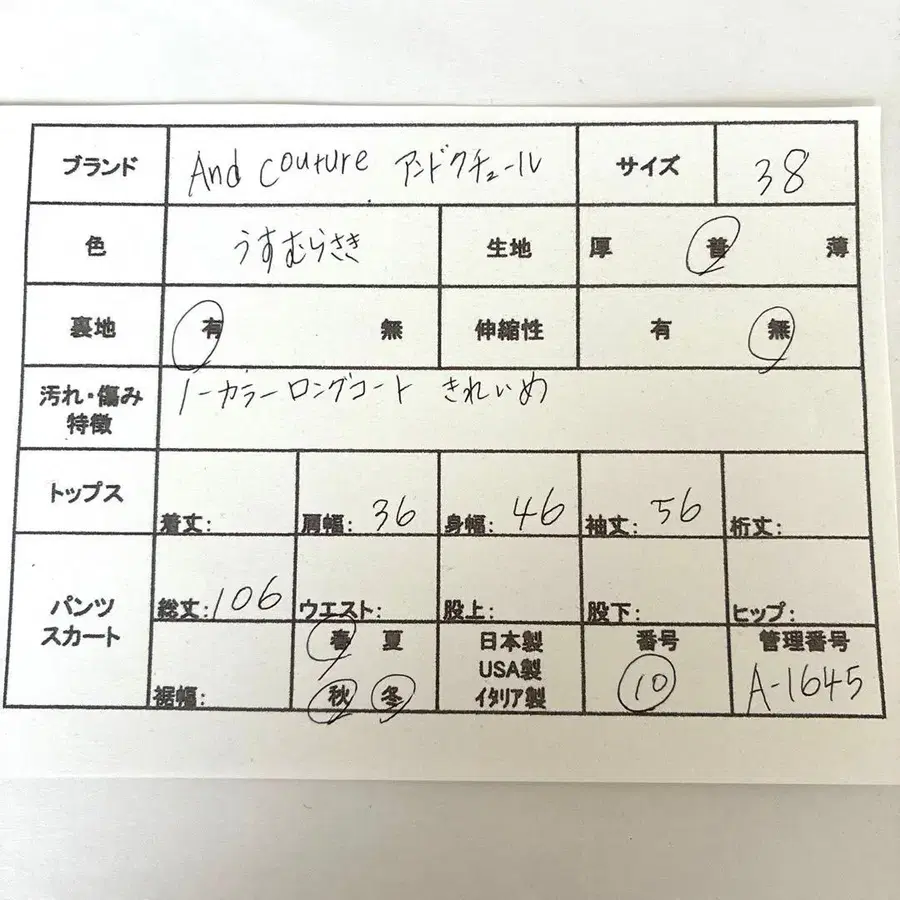 ブランド And couture アンドクチュール サイズ 38
色 うすむらさき 生地 厚 普 薄
裏地 有 無 伸縮性 有 無
汚れ・傷み ノーカラーロングコート きれいめ
特徴
トップス 着丈: 肩幅: 36 身幅: 46 袖丈: 56 裄丈:
パンツ スカート 総丈: 106 ウエスト: 股上: 股下: ヒップ:
裾幅: 春 夏 秋 冬 日本製 USA製 イタリア製 番号 10 管理番号 A-1645